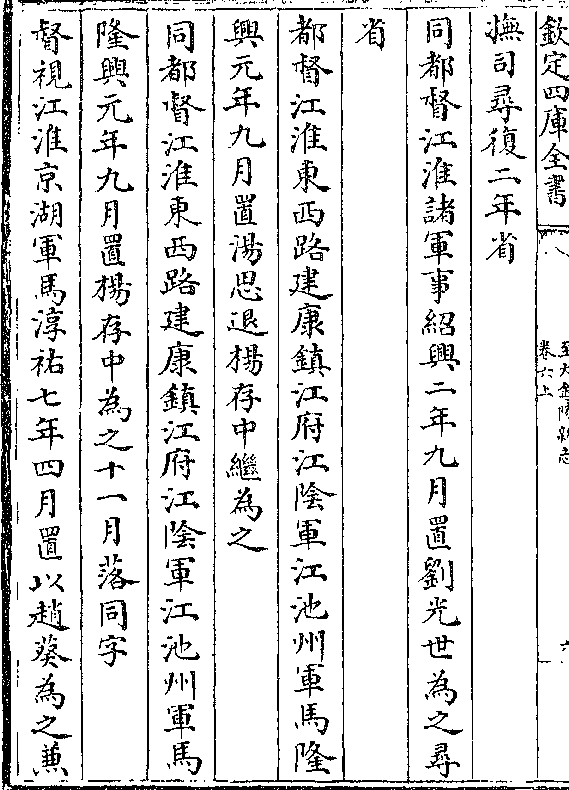 欽定四庫全書
卷六上
撫司尋復二年省
同都督江淮諸軍事紹興二年九月置劉光世為之尋
省
都督江淮東西路建康鎮江府江陰軍江池州軍馬隆
興元年九月置湯思退楊存中繼為之
同都督江淮東西路建康鎮江府江陰軍江池州軍馬
隆興元年九月置楊存中為之十一月落同字
督視江淮京湖軍馬淳祐七年四月置以趙葵為之兼